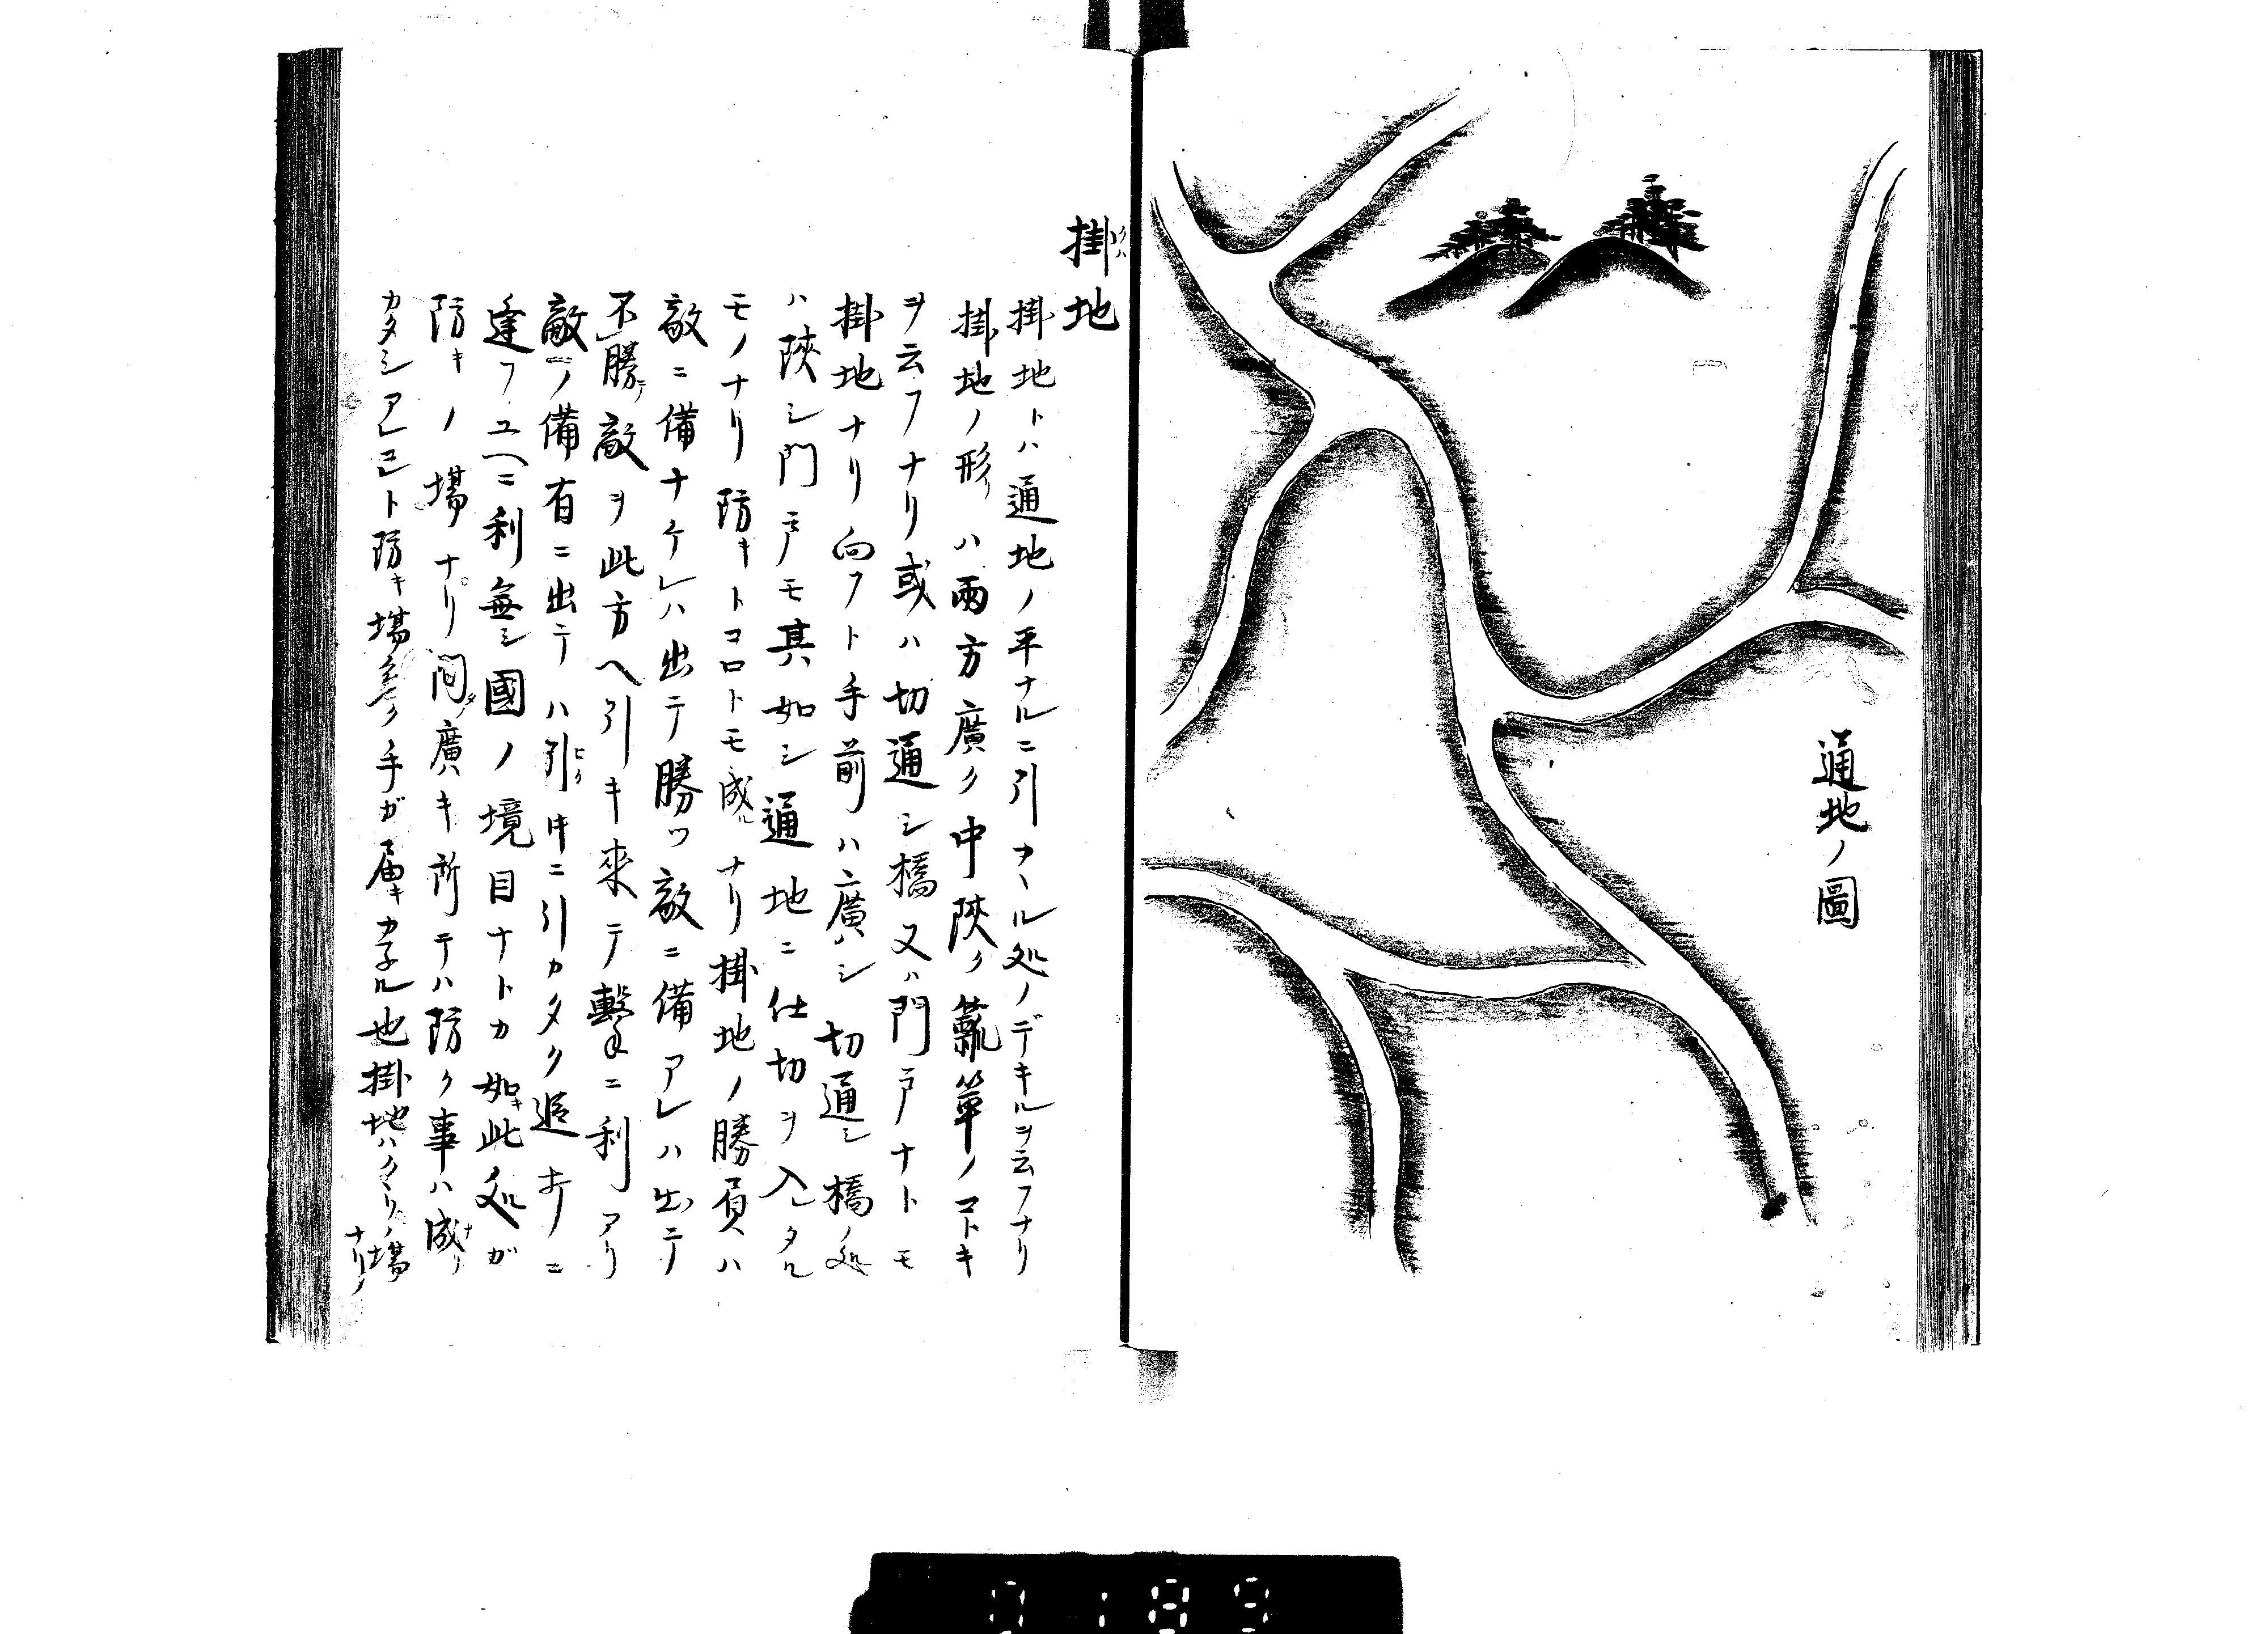 通地ノ圖
掛地
掛地トハ通地ノ平ナルニ引カヘル処ノデキルヲ云フナリ
掛地ノ形ハ兩方廣ク中陝ク瓢箪ノコトキ
ヲ云フナリ或ハ切通シ橋又ハ門戸ナトモ
掛地ナリ向フト手前ハ廣ハシ切通シ橋ノ処
ハ陝シ門戸モ其如シ通地ニ仕切ヲ入レタル
モノナリ防キトコロトモ成ルナリ掛地ノ勝負ハ
敵ニ備ナケレハ出テ勝ツ敵ニ備アレハ出テ
不勝敵ヲ此方ヘ引キ來テ擊ニ利アリ
敵ノ備有ニ出テハ引ヒク中ニ引カタク追オフニ
逢フユヘニ利無シ國ノ境目ナトカ如キ此処ガ
防キノ場ナリ間タノ廣キ所テハ防ク事ハ成リ
カタシアレヨト防キ場多クノ手ガ届キカヌル也掛地ハククリノ場
ナリ